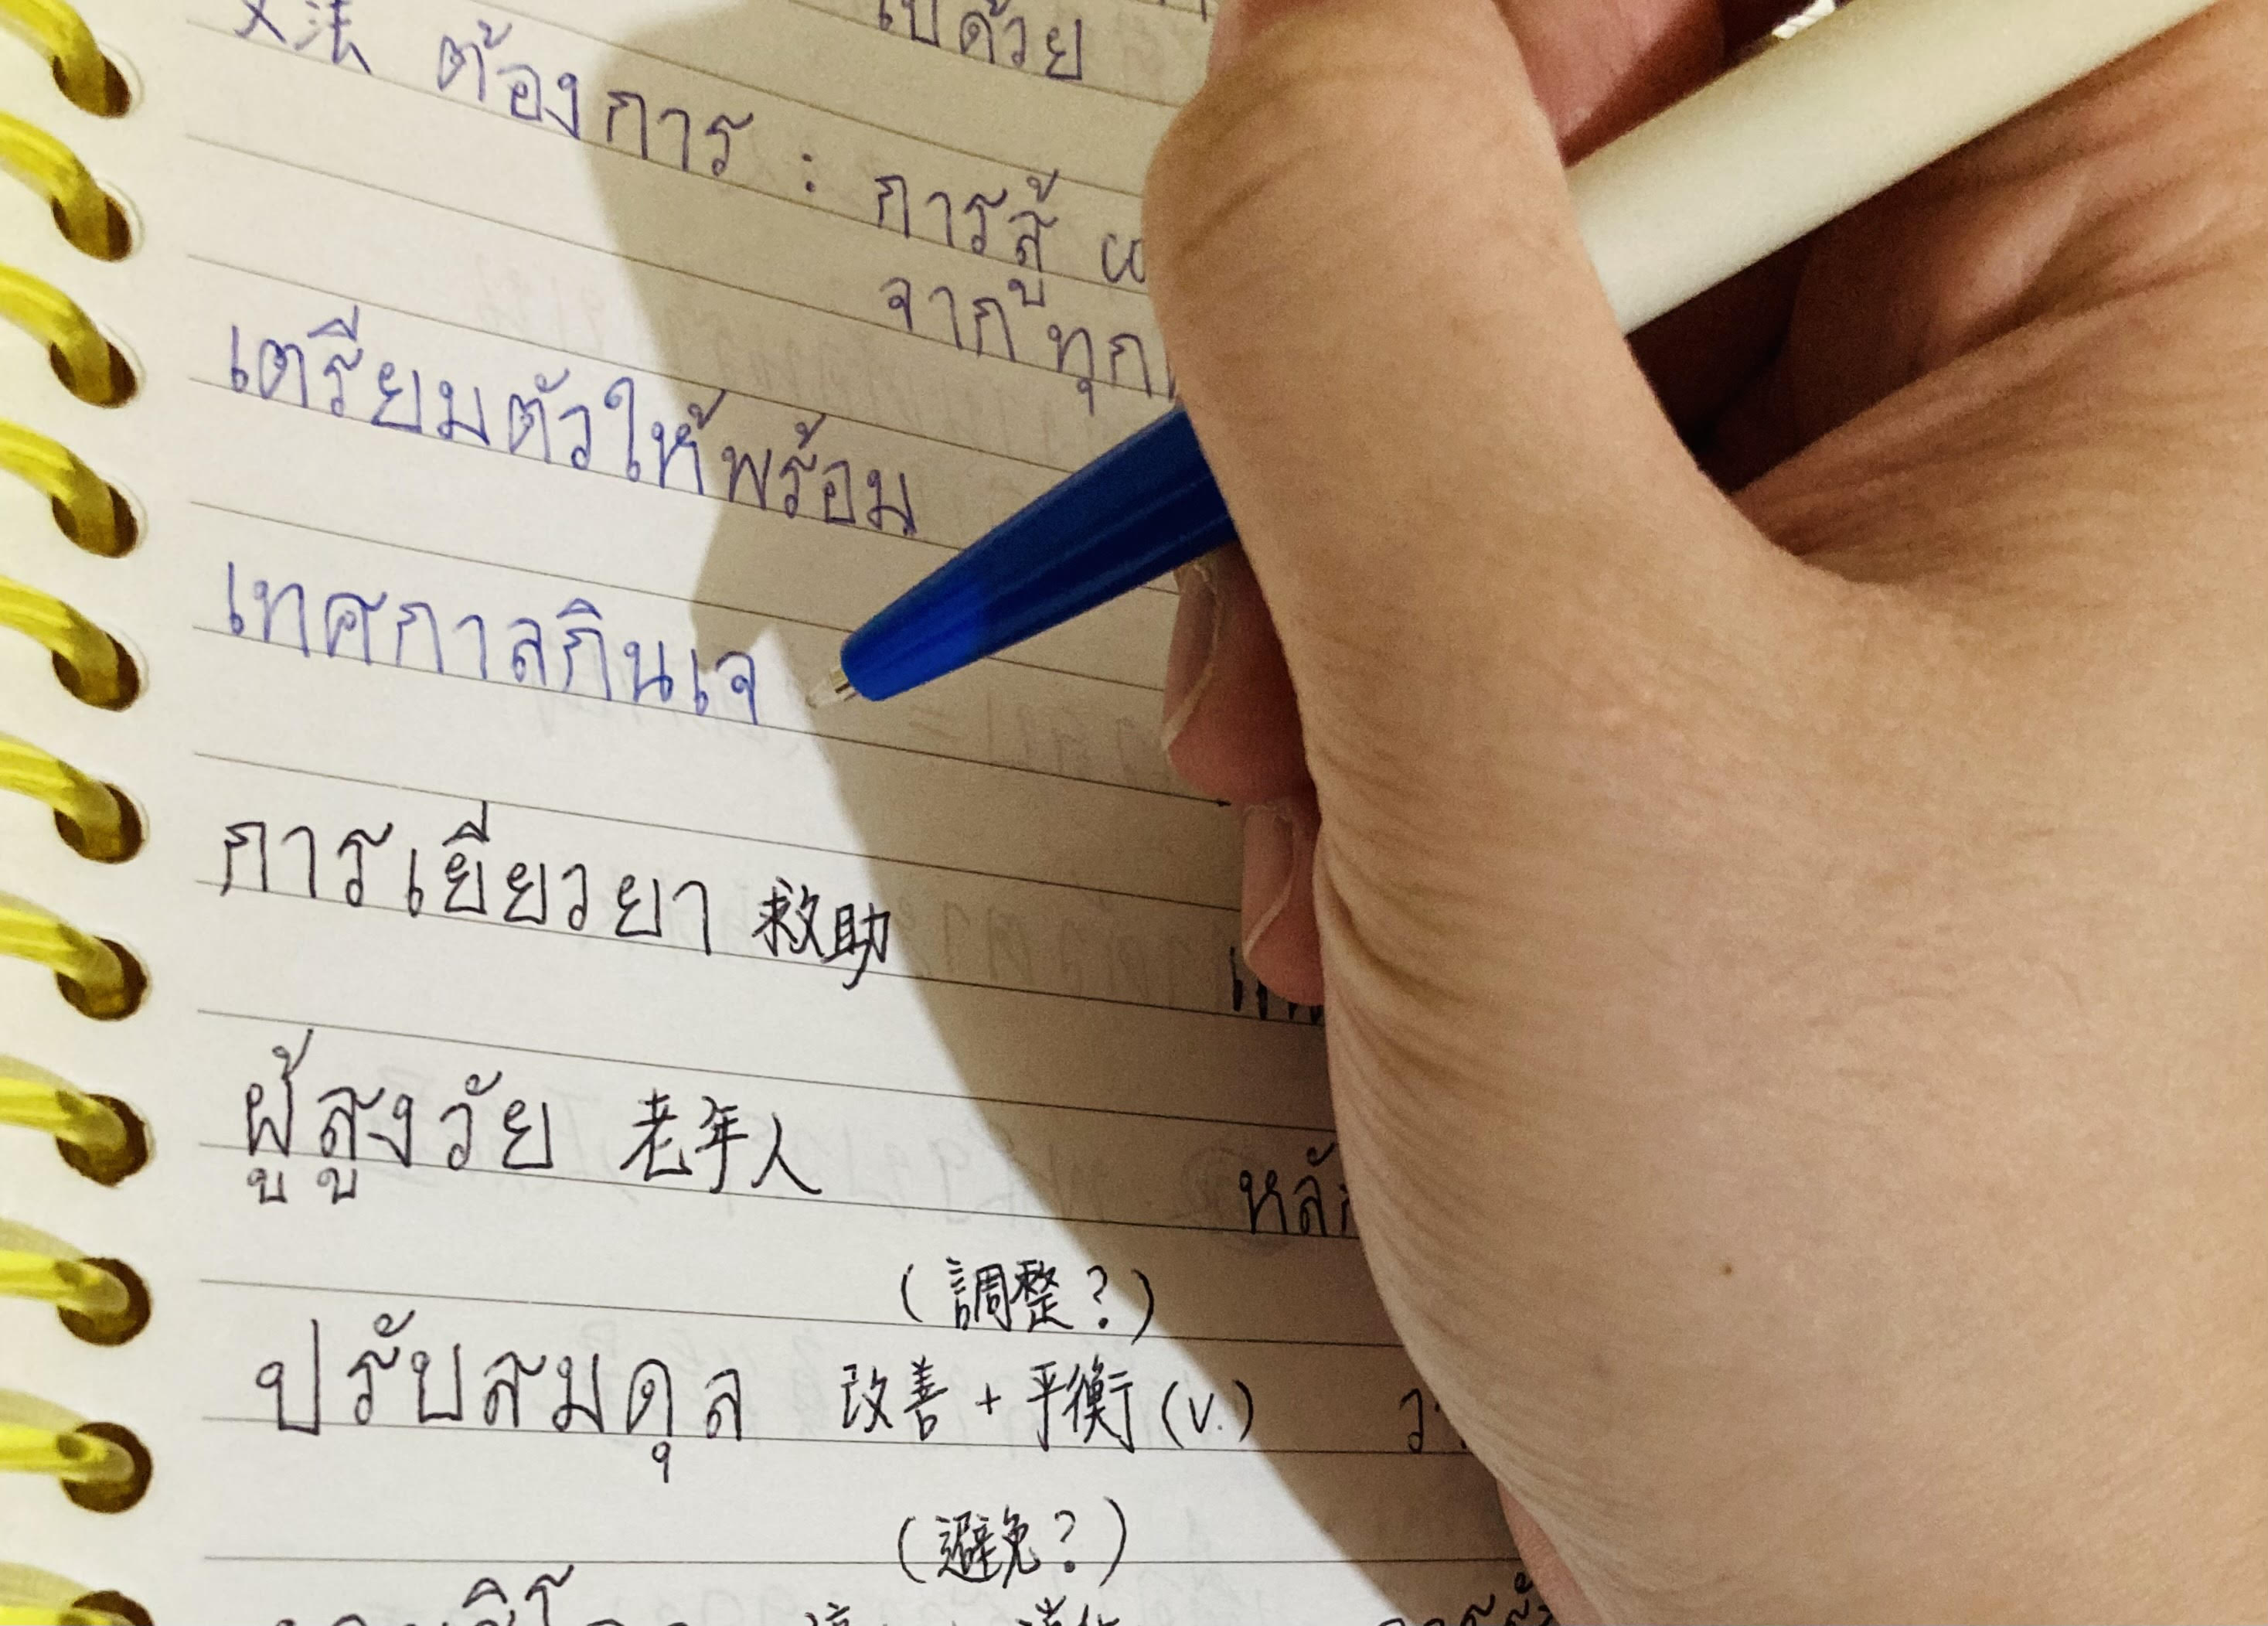 ไปด้วย
文法 ต้องการ : การสู้
จาก ทุก
เตรียมตัวให้พร้อม
เทศกาลกินเจ
การเยียวยา 救助
ผู้สูงวัย 老年人
(調整?)
ปรับสมดุล 改善 + 平衡 (v.)
(避免?)